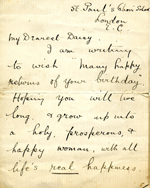 St Paul's Choir School
London
E.C
My Dearest Daisy
I am writing
to wish "Many happy
returns of your birthday"
Hoping you will live
long & grow up into
a holy, prosperous, &
happy woman, with all
life's real happiness.